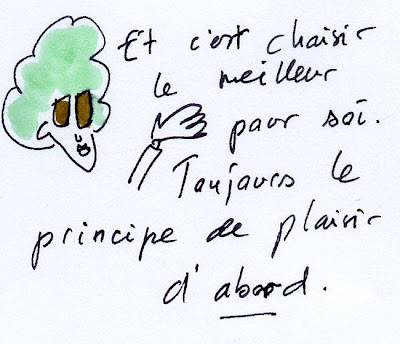 Et c'est choisir
le meilleur
pour soi.
Toujours le
principe de plaisir
d'abord.